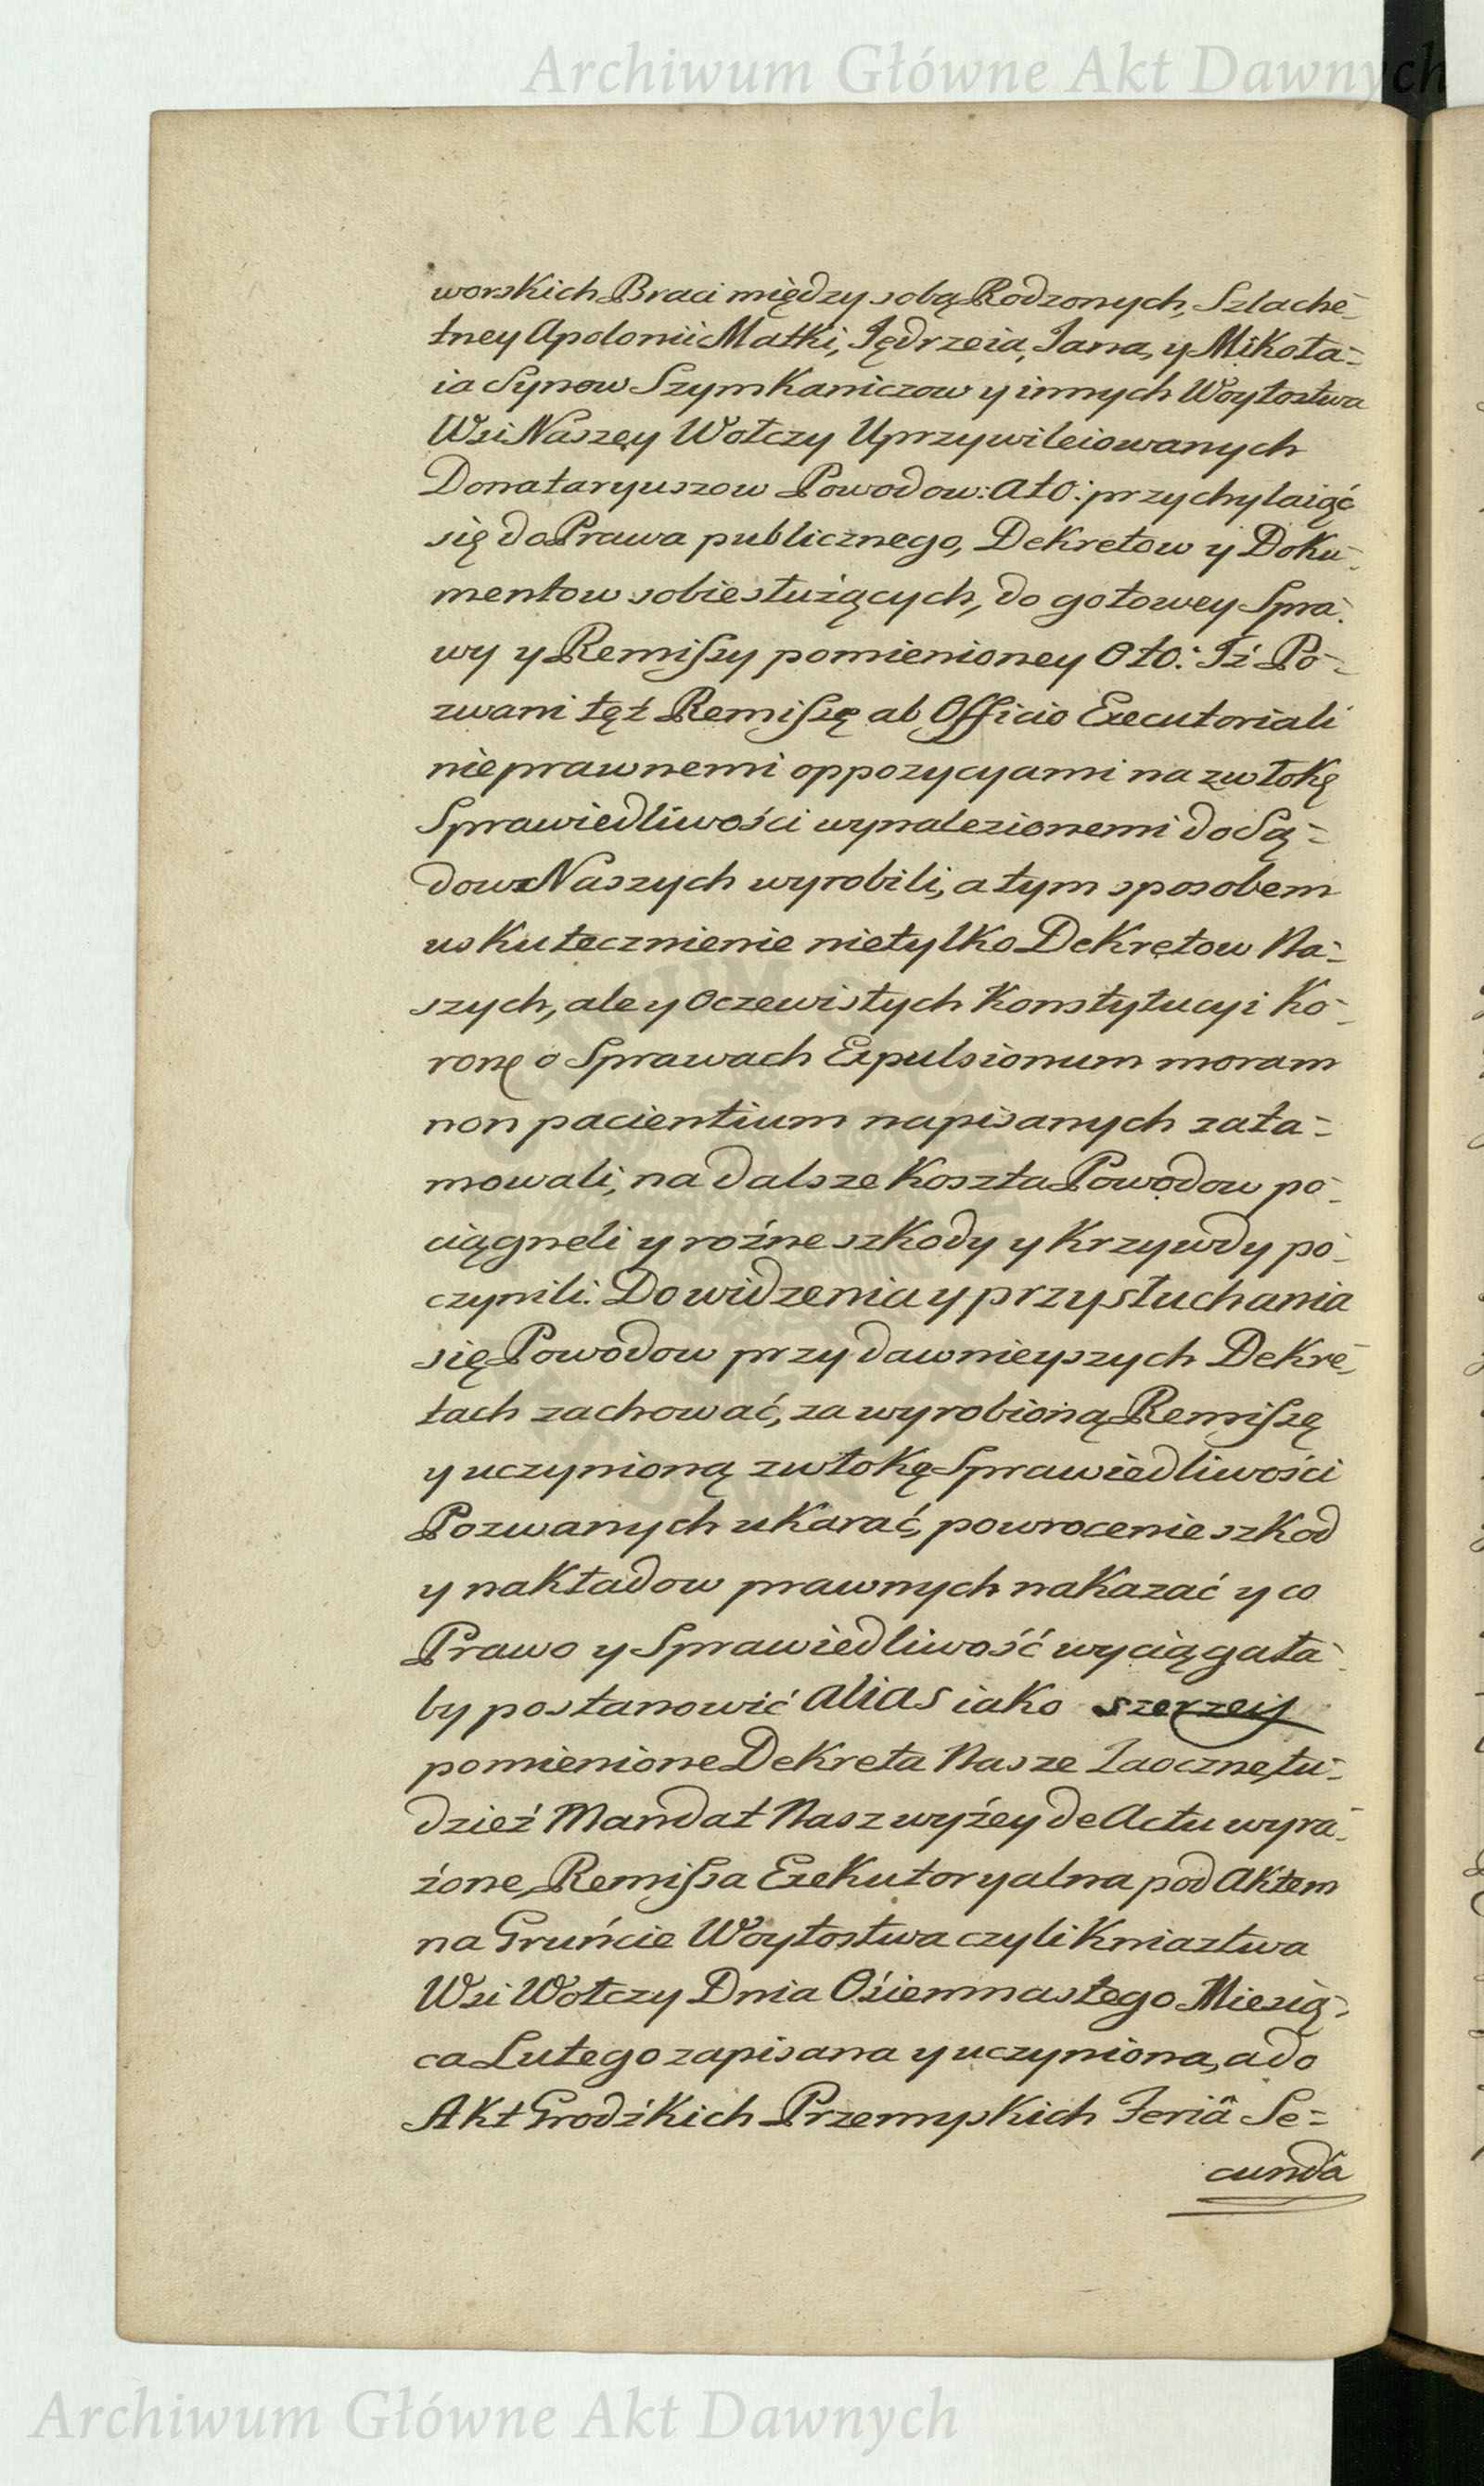 Archiwum Główne Akt Dawnych
worskich Braci między sobą Rodzonych, Szlache-
tney Apolonii Matki, Jędrzeia, Jana, y Mikoła-
ia Synow Szymkaniczow y innych Woytostwa
Wsi Naszey Wołczy Uprzywileiowanych
Donataryuszow Powodow: ato: przychylaiąć
się do Prawa publicznego, Dekretow y Doku-
mentow sobie służących, do gotowey Spra-
wy y Remiſsy pomienioney Oto: Iż Po-
zwani tęż Remiſsę ab Officio Executoriali
nieprawnemi oppozycyami na zwłokę
Sprawiedliwości wynalezionemi do Są-
dow Naszych wyrobili, a tym sposobem
uskutecznienie nietylko Dekretow Na-
szych, ale y Oczewistych Konstytucyi Ko-
ronę o Sprawach Expulsionum moram
non pacientium napisanych zata-
mowali, na dalsze koszta Powodow po-
ciągneli y rożne szkody y krzywdy po-
czynili. Do widzenia y przysłuchania
się Powodow przy dawnieyszych Dekre-
tach zachować, za wyrobioną Remiſsę
y uczynioną zwłokę Sprawiedliwości
Pozwanych ukarać, powrocenie szkod
y nakładow prawnych nakazać y co
Prawo y Sprawiedliwość wyciągała-
by postanowić alias iako szerzeij
pomienione Dekreta Nasze Zaoczne, tu-
dzież Mandat Nasz wyżey de Actu wyra-
żone, Remiſsa Exekutoryalna pod Aktem
na Gruńcie Woytostwa czyli Kniaztwa
Wsi Wołczy Dnia Ośiemnastego Miesią-
ca Lutego zapisana y uczyniona, a do
Akt Grodzkich Przemyskich Feriâ Se-
cundâ
Archiwum Główne Akt Dawnych